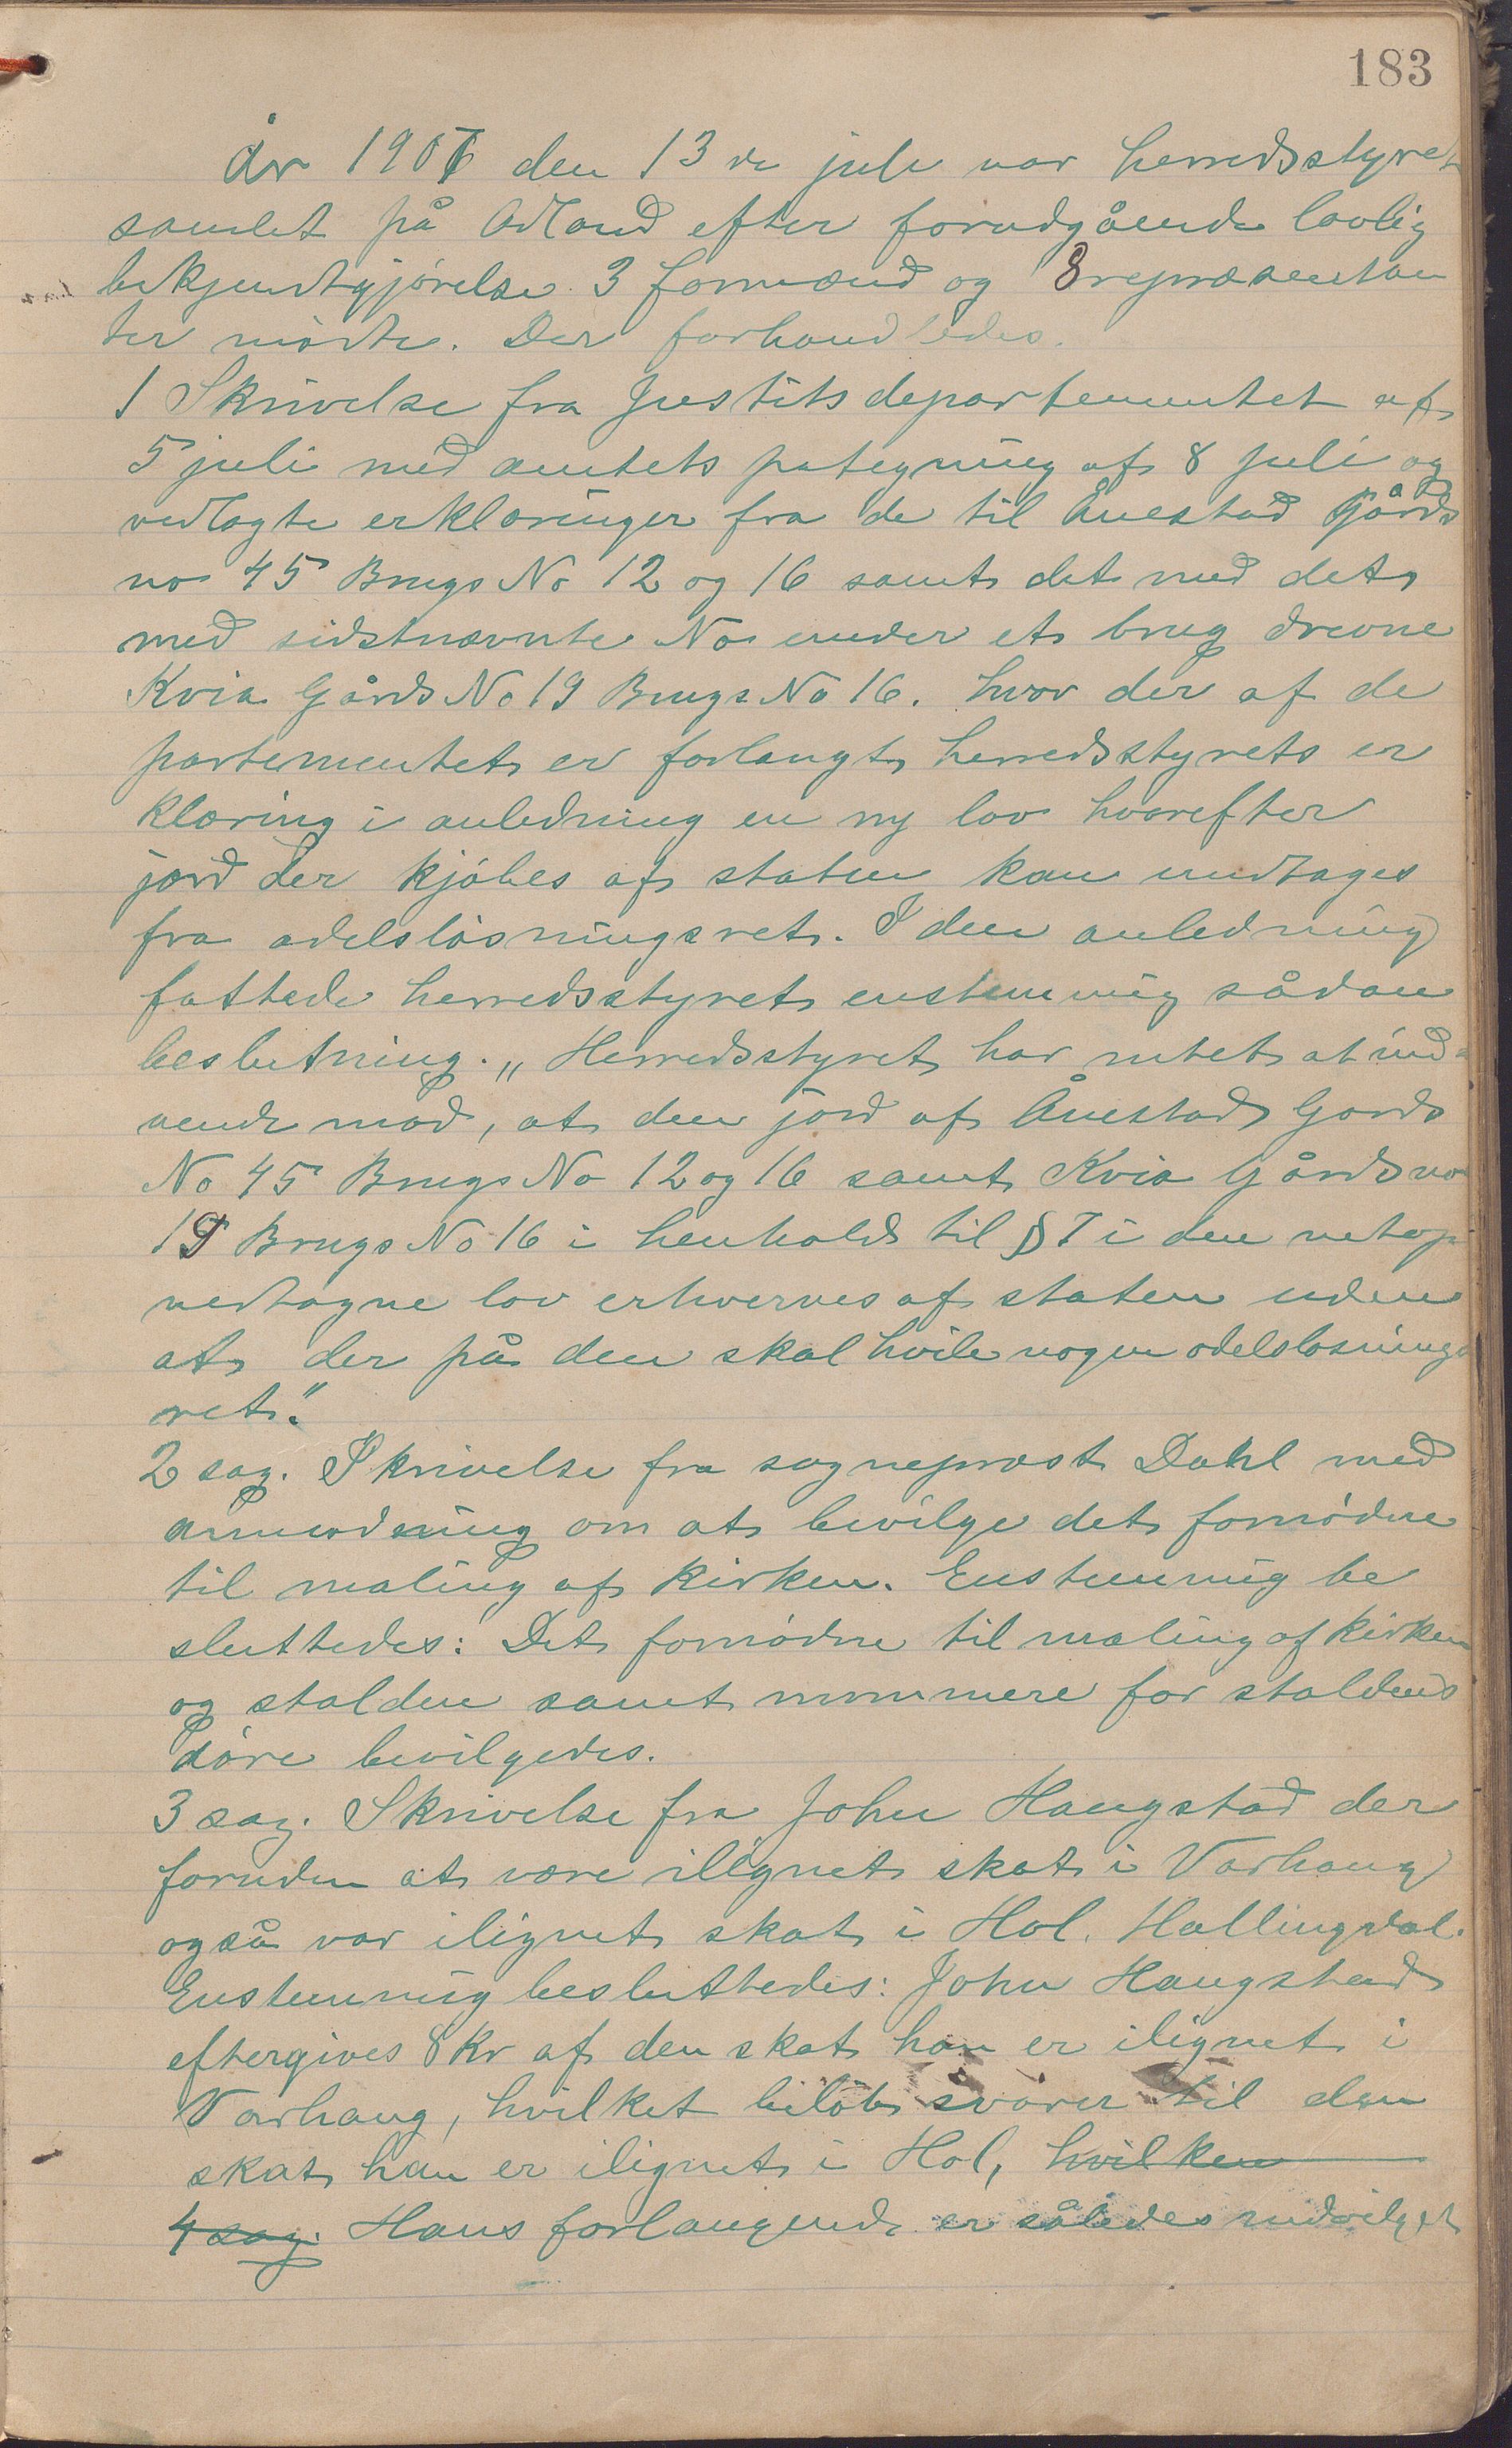 183
År 1907 den 13de juli var herredsstyret
samlet på Ødland efter forudgående lovlig
bekjendtgjørelse 3 formænd og 8 repræsentan
ter mødte. Der forhandledes.
1 Skrivelse fra Justitsdepartementet af
5 juli med amtets pategning af 8 juli og
vedlagte erklæringer fra de til Ånestad Gårds
no 45 Brugs No 12 og 16 samt det med det
med sidstnævnte No under et brug drevne
Kvia Gårds No 19 Brugs No 16. hvor der af de
partementet er forlangt herredsstyrets er
klæring i anledning en ny lov hvorefter
jord der kjøbes af staten kan undtages
fra odelsløsningsret. I den anledning
fattede herredsstyret enstemmig sådan
beslutning. „Herredsstyret har intet at ind
vende mod, at den jord af Ånestad Gards
No 45 Brugs No 12 og 16 samt Kvia Gårdsno
19 Brugs No 16 i henhold til § 7 i den netop
vedtagne lov erhverves af staten uden
at der på den skal hvile nogen odelsløsnings
ret."
2 sag. Skrivelse fra sogneprest Dahl med
anmodning om at bevilge det fornødne
til maling af Kirken. Enstemmig be
sluttedes: Det fornødne til maling af Kirken
og stalden samt nummere for staldens
døre bevilgedes.
3 sag. Skrivelse fra John Haugstad der
foruden at være ilignet skat i Varhaug
også var ilignet skat i Hol. Hallingdal.
Enstemmig besluttedes: John Haugstad
eftergives 8 Kr af den skat han er ilignet i
Varhaug, hvilket beløb svarer til den
skat han er ilignet i Hol, hvilken
4 sag. Hans forlangende er således